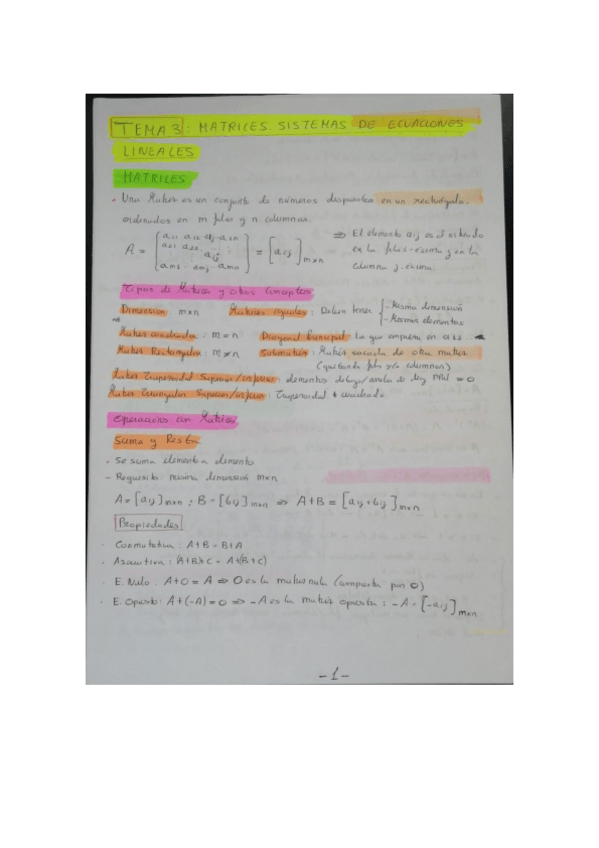 TEMA 3: MATRICES. SISTEMAS DE ECUACIONES
LINEALES
MATRICES
. Una Matriz es un conjunto de números dispuestos en un rectángulo,
ordenados en m filas y n columnas.
A = [a11 a12 a1j ... a1n
a21 a22 ...
aij
am1 ... amj ... amn] = [aij]m×n ⇒ El elemento aij es el situado
en la fila i-esima y en la
columna j-esima
Tipos de Matrices y otros Conceptos
Dimension m×n Matrices iguales: Deben tener { - Misma dimensión
- Mismos elementos
Matriz cuadrada: m=n Diagonal Principal: La que empieza en a11
Matriz Rectangular: m≠n Submatriz: Matriz sacada de otra matriz
(quitando filas y/o columnas)
Matriz Trapezoidal Superior/inferior: elementos debajo/arriba de diag = 0
Matriz Triangular Superior/inferior: Trapezoidal + cuadrada
Operaciones con Matrices
Suma y Resta
. Se suma elemento a elemento
- Requisito: misma dimension m×n
A=[aij]m×n ; B=[bij]m×n ⇒ A+B=[aij+bij]m×n
Propiedades
. Conmutativa: A+B=B+A
. Asociativa: (A+B)+C = A+(B+C)
. E. Nulo: A+O=A ⇒ O es la matriz nula (compuesta por 0)
. E. Opuesto: A+(-A)=0 ⇒ -A es la matriz opuesta: -A=[-aij]m×n
-1-